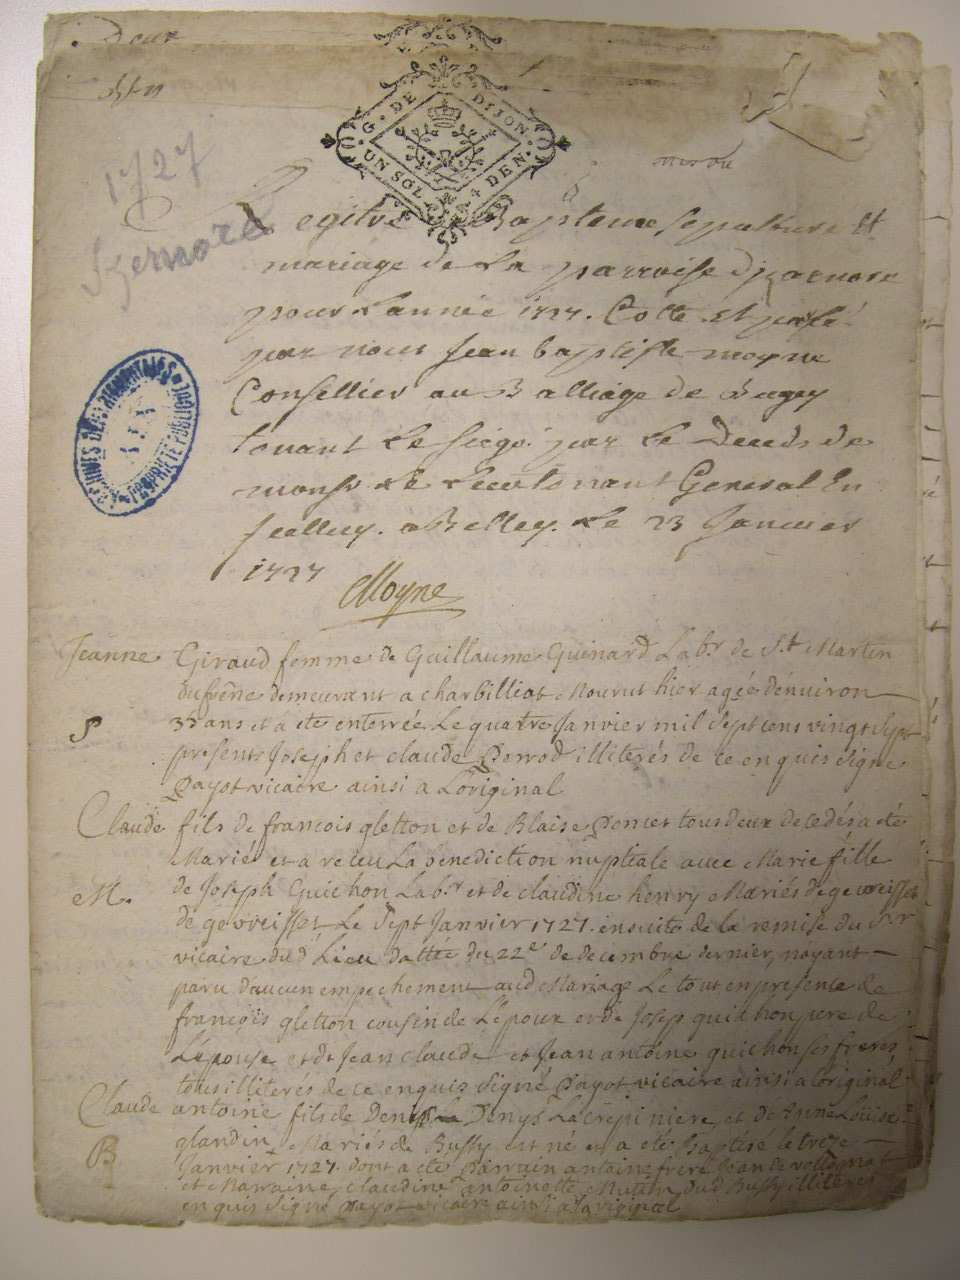 Deux
G. DE DIJON
UN SOL 4 DEN.
1727
Izernore
Regitre Bapteme sepulture Et
mariage de La parroise d'Izernore
pour L'année 1727. Cotté Et paraffé
par nous Jean baptiste moyne
Conseillier au Balliage de Bugey
tenant Le siege par Le Deceds de
monsr Le Lieutenant General En
Icelluy. a Belley Le 23 Janvier
1727 Moyne
ARCHIVES DEPARTEMENTALES
AIN
PROPRIETE PUBLIQUE
Jeanne Giraud femme de Guillaume Guinard Labr de St Martin
dufréne demeurant a charbilliat Mourut hier agée dénuiron
35 ans et a été enterrée Le quatre Janvier mil sept cens vingt sept
S
presents Joseph et claude Perrod illiterés de ce enquis signé
Payot vicaire ainsi a L'original
Claude fils de francois gletton et de Blaise Poncet tous deux decedés a été
Marié et a receu La benediction nuptiale avec Marie fille
M.
de Joseph Guichon Labr et de claudine henry Mariés de gevreisset
de gevreisset Le sept Janvier 1727. ensuite de la remise du Sr
vicaire dud Lieu dattée du 22e de decembre dernier, n'ayant
paru d'aucun empechement aud Mariage Le tout en presence de
francois gletton cousin de L'époux et de Josep guichon pere de
L'épouse et de Jean claude et Jean antoine guichon ses freres
tous illiterés de ce enquis signé Payot vicaire ainsi a loriginal
Claude antoine fils de Denis La Denys Lacrepiniere et de Anne Louise
glandin Mariés de Bussy est né et a été baptisé le treze
B
Janvier 1727 dont a été Parrain antoine frere Jean de volognat
et Marraine claudine antoinette dud Bussy illiterés
enquis signé payot vicaire ainsi a loriginal